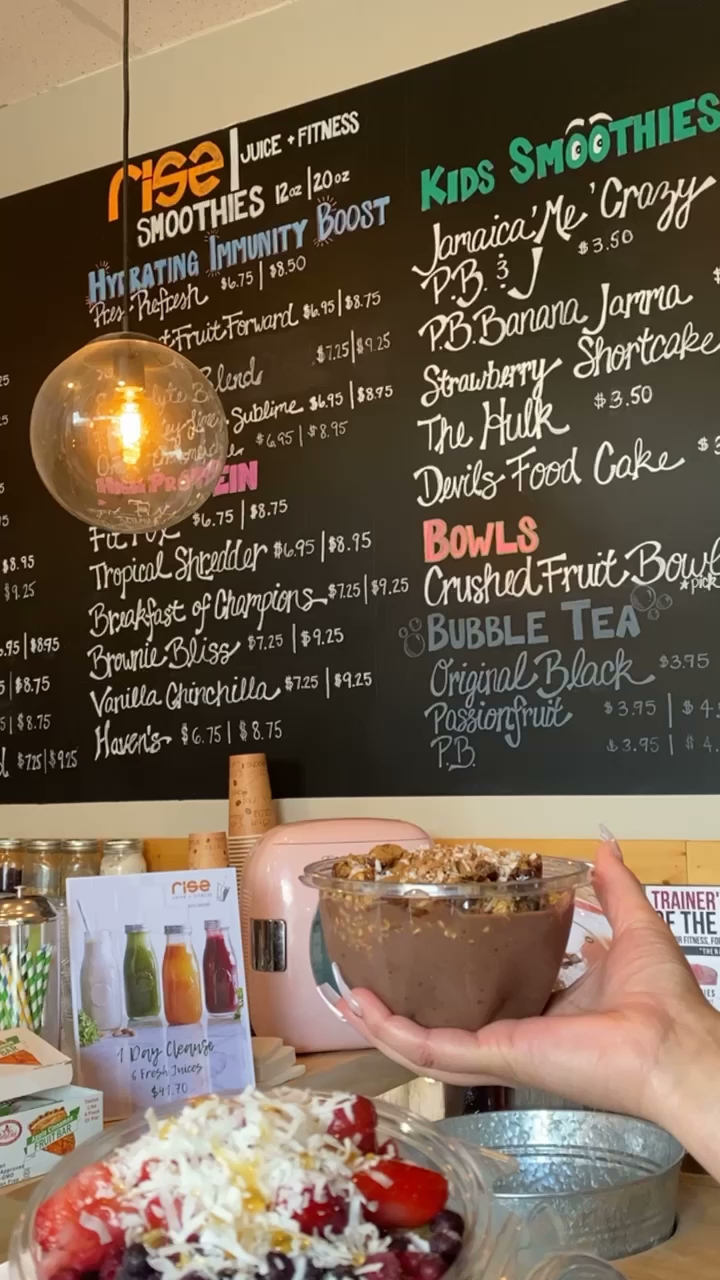 rise JUICE + FITNESS
SMOOTHIES 12oz | 20oz
HYDRATING IMMUNITY BOOST
Refresh $6.75 | $8.50
Fruit Forward $6.95 | $8.75
Blend $7.25 | $9.25
Sublime $6.95 | $8.95
$6.95 | $8.95
HIGH PROTEIN
$6.75 | $8.75
Tropical Shredder $6.95 | $8.95
Breakfast of Champions $7.25 | $9.25
Brownie Bliss $7.25 | $9.25
Vanilla Chinchilla $7.25 | $9.25
Haven's $6.75 | $8.75
$8.95
$9.25
6.95 | $8.95
| $8.75
| $8.75
$7.25 | $9.25
KIDS SMOOTHIES
Jamaica 'Me' Crazy
P.B. & J $3.50
P.B. Banana Jamma
Strawberry Shortcake
The Hulk $3.50
Devils Food Cake
BOWLS
Crushed Fruit Bowl
*pick
BUBBLE TEA
Original Black $3.95
Passionfruit $3.95 |
P.B. $3.95 |
rise
1 Day Cleanse
6 Fresh Juices
$41.70
TRAINER'
OF THE
FRUIT BAR